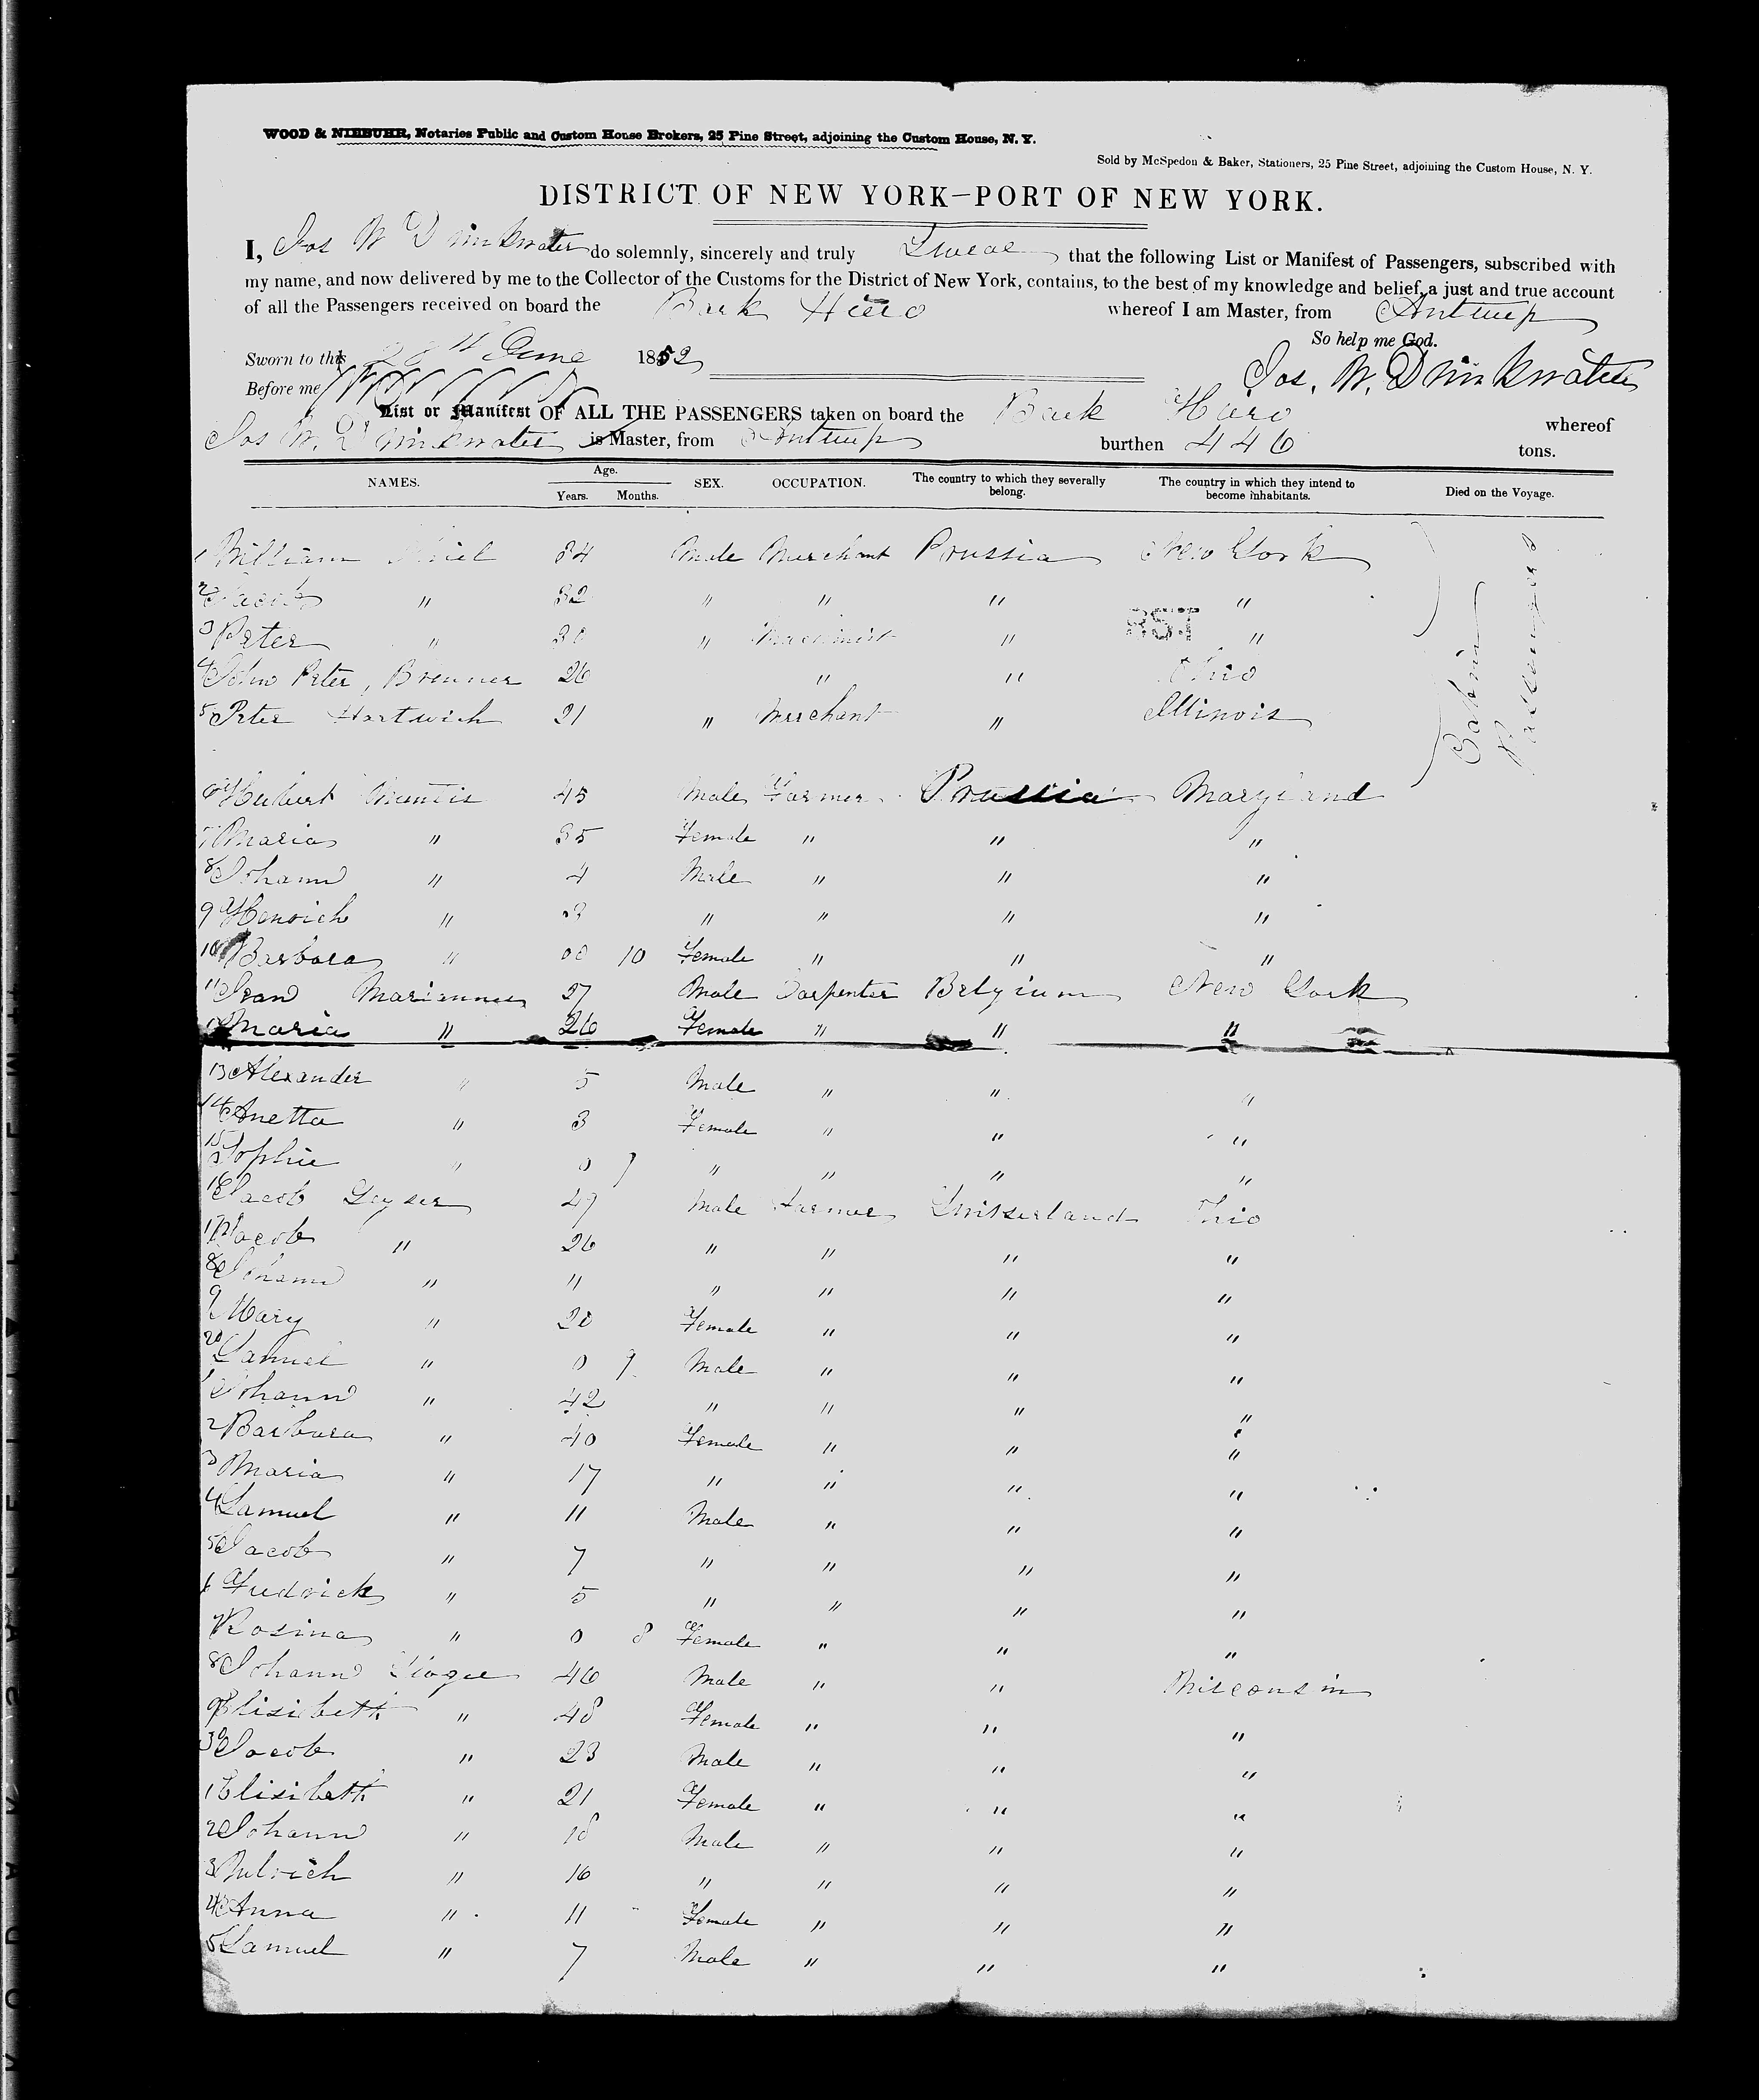 WOOD & NIEBUHR, Notaries Public and Custom House Brokers, 25 Pine Street, adjoining the Custom House, N. Y.
Sold by McSpedon & Baker, Stationers, 25 Pine Street, adjoining the Custom House, N. Y.
DISTRICT OF NEW YORK—PORT OF NEW YORK.
I, Jos W Drinkwater do solemnly, sincerely and truly Swear that the following List or Manifest of Passengers, subscribed with
my name, and now delivered by me to the Collector of the Customs for the District of New York, contains, to the best of my knowledge and belief, a just and true account
of all the Passengers received on board the Bark Hero whereof I am Master, from Antwerp
So help me God.
Sworn to this 28th June 1852
Jos. W. Drinkwater
Before me
List or Manifest OF ALL THE PASSENGERS taken on board the Bark Hero whereof
Jos W. Drinkwater is Master, from Antwerp burthen 446 tons.
NAMES. Age. Years. Months. SEX. OCCUPATION. The country to which they severally belong. The country in which they intend to become inhabitants. Died on the Voyage.
1 William 34 Male Merchant Prussia New York
2 Jacob " 32 " " " "
3 Peter " 30 " Machinist " "
4 John Peter, Brenner 26 " " Ohio
5 Peter Hartwich 21 " Merchant " Illinois
Cabin Passengers
6 Hubert 45 Male Farmer Prussia Maryland
7 Maria " 35 Female " " "
8 Johann " 4 Male " " "
9 Henrich " 3 " " " "
10 Barbara " 00 10 Female " " "
11 Jean Mariannee 27 Male Carpenter Belgium New York
12 Maria " 26 Female " " "
13 Alexander " 5 Male " " "
14 Anetta " 3 Female " " "
15 Sophie " 0 9 " " " "
16 Jacob Geyser 49 Male Farmer Switserland Ohio
17 Jacob " 26 " " " "
8 Johann " 11 " " " "
9 Mary " 20 Female " " "
20 Samuel " 0 9 Male " " "
1 Johann " 42 " " " "
2 Barbara " 40 Female " " "
3 Maria " 17 " " " "
4 Samuel " 11 Male " " "
5 Jacob " 7 " " " "
6 Fredrick " 5 " " " "
7 Rosina " 0 8 Female " " "
8 Johann 46 Male " " Wisconsin
9 Elisibeth " 48 Female " " "
30 Jacob " 23 Male " " "
1 Elisibeth " 21 Female " " "
2 Johann " 18 Male " " "
3 Hulrich " 16 " " " "
4 Anna " 11 Female " " "
5 Samuel " 7 Male " " "